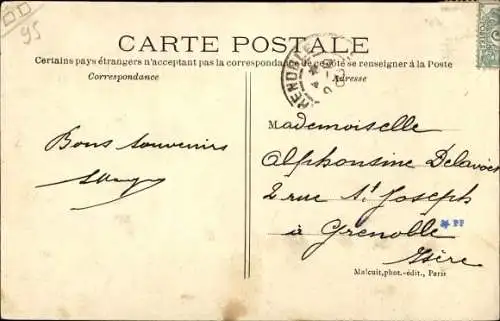 95
CARTE POSTALE
Certains pays étrangers n'acceptent pas la correspondance de ce côté se renseigner à la Poste
Correspondance
Adresse
GRENOBLE
Bons souvenirs
Mademoiselle
Alphonsine
2 rue St Joseph
à Grenoble
Isère
PF
Malcuit, phot.-édit., Paris